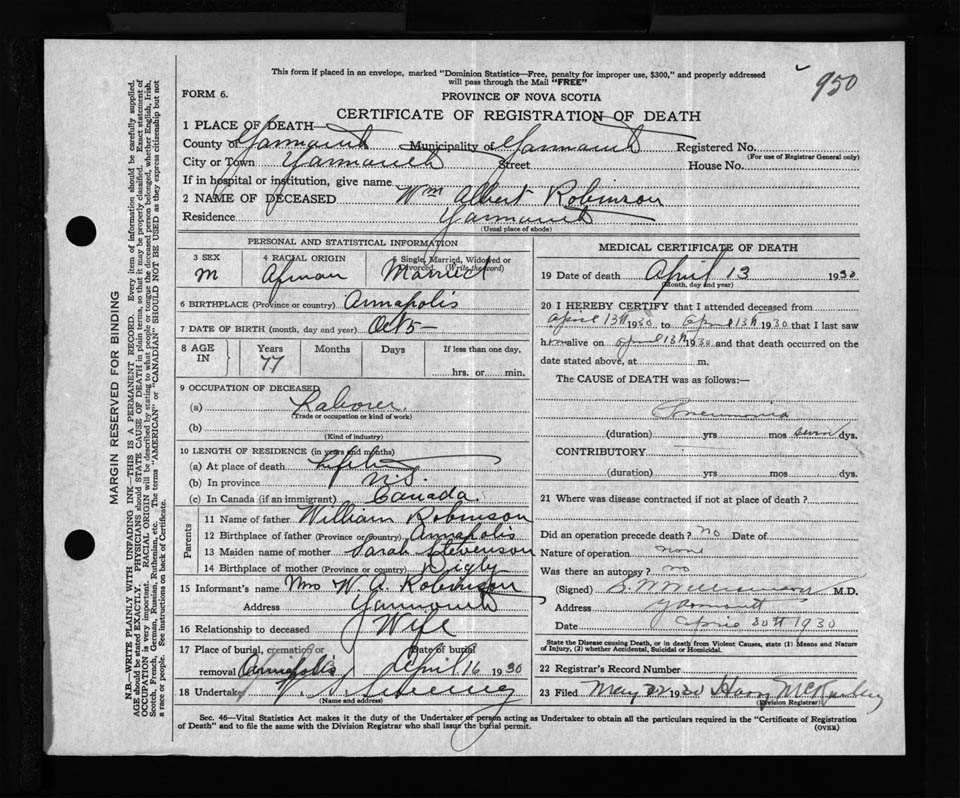 950
This form if placed in an envelope, marked "Dominion Statistics—Free, penalty for improper use, $300," and properly addressed
will pass through the Mail "FREE"
FORM 6.
PROVINCE OF NOVA SCOTIA
CERTIFICATE OF REGISTRATION OF DEATH
1 PLACE OF DEATH—
County of Yarmouth Municipality of Yarmouth Registered No.
(For use of Registrar General only)
City or Town Yarmouth Street House No.
If in hospital or institution, give name
2 NAME OF DECEASED Wm Albert Robinson
Residence Yarmouth
(Usual place of abode)
PERSONAL AND STATISTICAL INFORMATION
3 SEX 4 RACIAL ORIGIN 5 Single, Married, Widowed or
Divorced. (Write the word)
M Married
6 BIRTHPLACE (Province or country) Annapolis
7 DATE OF BIRTH (month, day and year) Oct 5—
8 AGE IN Years Months Days If less than one day,
77 hrs. or min.
9 OCCUPATION OF DECEASED
(a) Laborer
(Trade or occupation or kind of work)
(b)
(Kind of industry)
10 LENGTH OF RESIDENCE (in years and months)
(a) At place of death
(b) In province N.S.
(c) In Canada (if an immigrant) Canada.
Parents
11 Name of father William Robinson
12 Birthplace of father (Province or Country) Annapolis
13 Maiden name of mother Sarah Stevenson
14 Birthplace of mother (Province or country) Digby
15 Informant's name Mrs W. A. Robinson
Address Yarmouth
16 Relationship to deceased Wife
17 Place of burial, cremation or Date of burial
removal Annapolis April 16 1930
18 Undertaker
(Name and address)
MEDICAL CERTIFICATE OF DEATH
19 Date of death April 13 1930
(Month, day and year)
20 I HEREBY CERTIFY that I attended deceased from
April 13th 1930 to April 13th 1930 that I last saw
him alive on April 13th 1930 and that death occurred on the
date stated above, at m.
The CAUSE OF DEATH was as follows:—
Pneumonia
(duration) yrs mos seven dys.
CONTRIBUTORY
(duration) yrs mos dys.
21 Where was disease contracted if not at place of death?
Did an operation precede death? no Date of
Nature of operation none
Was there an autopsy? no
(Signed) M.D.
Address Yarmouth
Date April 30th 1930
State the Disease causing Death, or in death from Violent Causes, state (1) Means and Nature
of Injury, (2) whether Accidental, Suicidal or Homicidal.
22 Registrar's Record Number
23 Filed May 22 1930 Harry
(Division Registrar)
Sec. 46—Vital Statistics Act makes it the duty of the Undertaker or person acting as Undertaker to obtain all the particulars required in the "Certificate of Registration
of Death" and to file the same with the Division Registrar who shall issue the burial permit.
(OVER)
MARGIN RESERVED FOR BINDING
N.B.—WRITE PLAINLY WITH UNFADING INK—THIS IS A PERMANENT RECORD. Every item of information should be carefully supplied.
AGE should be stated EXACTLY. PHYSICIANS should STATE CAUSE OF DEATH in plain terms, so that it may be properly classified. Exact statement of
OCCUPATION is very important. RACIAL ORIGIN will be described by stating to what people or tongue the deceased person belonged, whether English, Irish,
Scotch, French, German, Russian, Ruthenian, etc. The terms "AMERICAN" or "CANADIAN" SHOULD NOT BE USED as they express citizenship but not
a race or people. See instructions on back of Certificate.